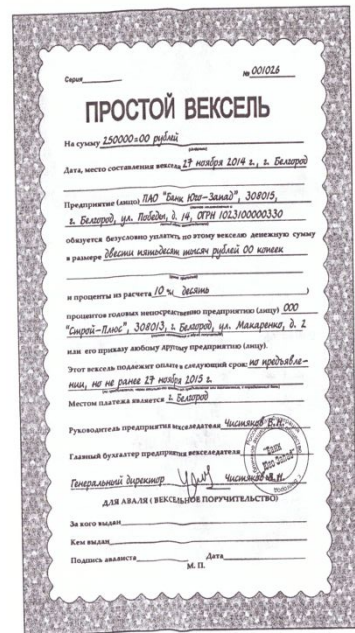 Серия
№ 001026
ПРОСТОЙ ВЕКСЕЛЬ
На сумму 250000=00 рублей
(цифрами)
Дата, место составления векселя 27 ноября 2014 г., г. Белгород
Предприятие (лицо) ПАО "Банк Юго-Запад", 308015,
г. Белгород, ул. Победы, д. 14, ОГРН 1023100000330
обязуется безусловно уплатить по этому векселю денежную сумму
в размере двести пятьдесят тысяч рублей 00 копеек
и проценты из расчета 10 % десять )
процентов годовых непосредственно предприятию (лицу) ООО
"Строй-Плюс", 308013, г. Белгород, ул. Макаренко, д. 2
или его приказу любому другому предприятию (лицу).
Этот вексель подлежит оплате в следующий срок: по предъявле-
нии, но не ранее 27 ноября 2015 г.
Местом платежа является г. Белгород
Руководитель предприятия векселедателя Чистяков В.Н.
Главный бухгалтер предприятия векселедателя
"Банк Юго-Запад"
Генеральный директор Чистяков
ДЛЯ АВАЛЯ ( ВЕКСЕЛЬНОЕ ПОРУЧИТЕЛЬСТВО)
За кого выдан
Кем выдан
Подпись авалиста Дата
М. П.